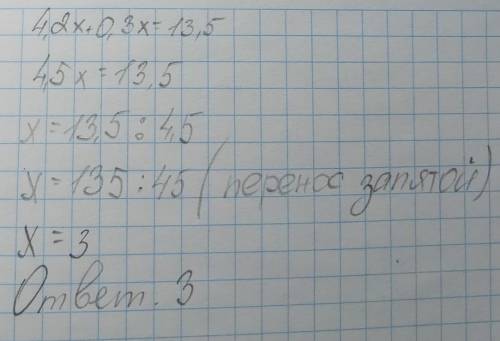 4,2x+0,3x=13,5
4,5x=13,5
x=13,5:4,5
x=135:45 (перенос запятой)
x=3
Ответ. 3